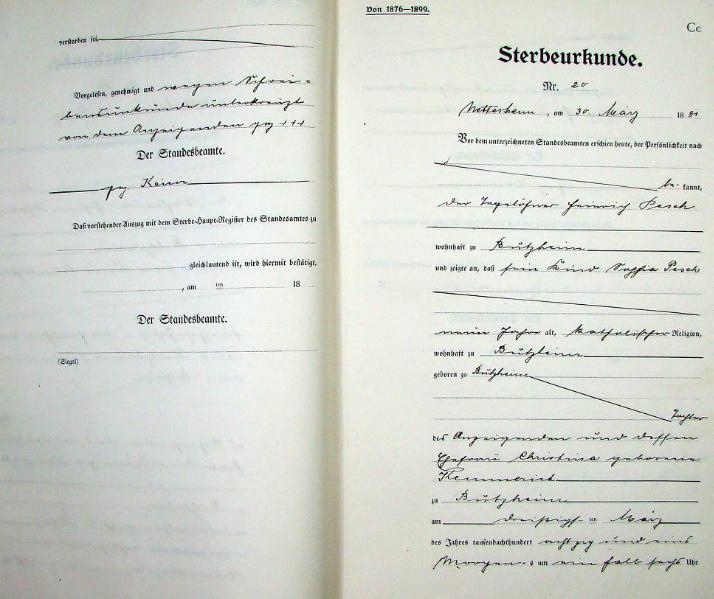 verstorben sei.
Vorgelesen, genehmigt und wegen Schrei-
bensunkunde unterkreuzt
von dem Anzeigenden gez +++
Der Standesbeamte.
gez Keiser
Daß vorstehender Auszug mit dem Sterbe-Haupt-Register des Standesamtes zu
gleichlautend ist, wird hiermit bestätigt.
, am ten 18
Der Standesbeamte.
(Siegel)
Von 1876—1899.
Cc
Sterbeurkunde.
Nr. 20
Wetterheim, am 30. März 1881
Vor dem unterzeichneten Standesbeamten erschien heute, der Persönlichkeit nach
be kannt,
der Tagelöhner Heinrich Pesch
wohnhaft zu Bützheim
und zeigte an, daß sein Kind Sophia Pesch
neun Jahre alt, katholischer Religion,
wohnhaft zu Bützheim
geboren zu Bützheim
Tochter
des Anzeigenden und dessen
Ehefrau Christina geborene
Kemmerich
zu Bützheim
am dreißigst en März
des Jahres tausendachthundert achtzig und eins
Morgens um ein halb sechs Uhr